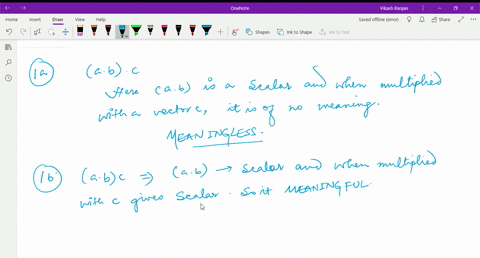 OneNote
Vikash Ranjan
File Home Insert Draw View Help
Saved offline (error)
Shapes Ink to Shape Ink to Text
1a (a.b).c
Here (a.b) is a scalar and when multiplied
with a vector c, it is of no meaning.
MEANINGLESS.
1b (a.b)c ⇒ (a.b) → scalar and when multiplied
with c gives scalar. So it MEANINGFUL.